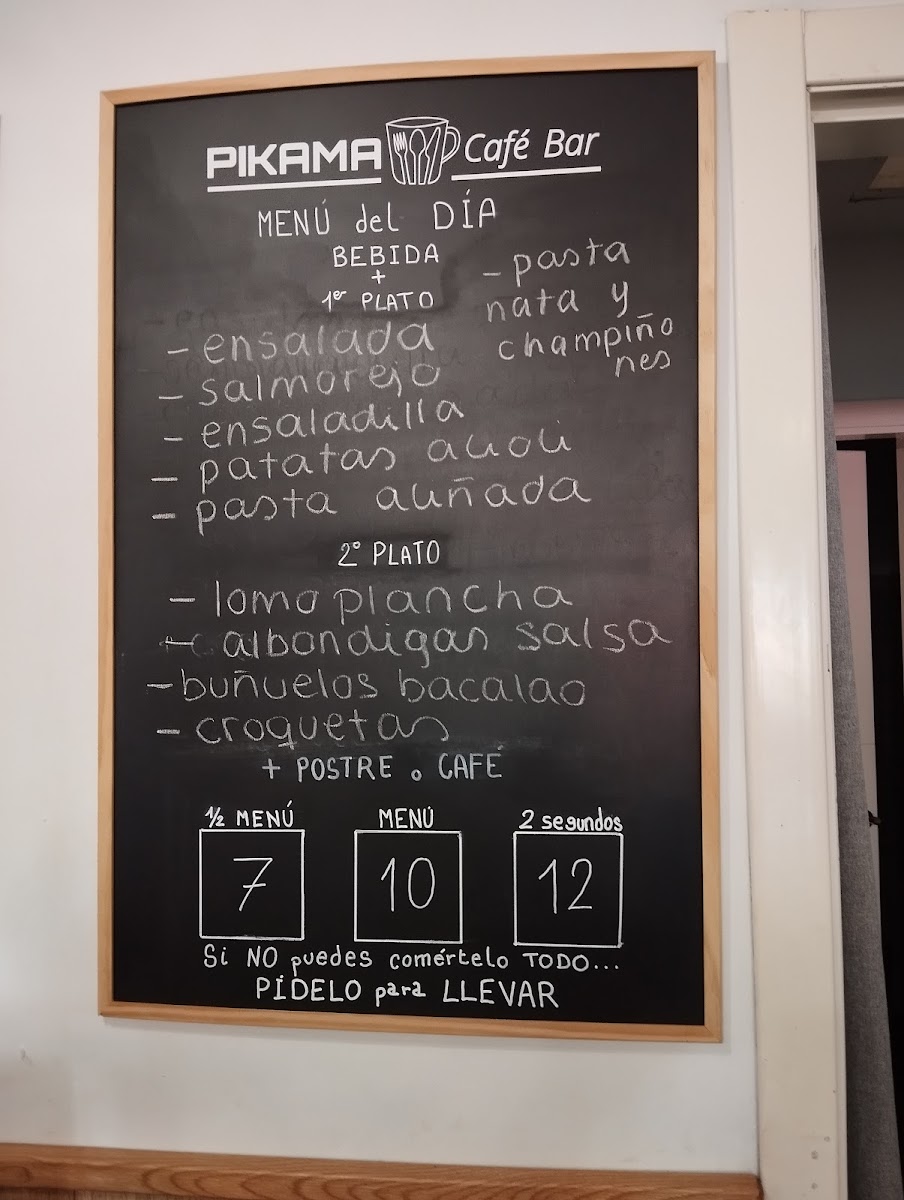 PIKAMA Café Bar
MENÚ del DÍA
BEBIDA
+
1er PLATO
- ensalada
- salmorejo
- ensaladilla
- patatas alioli
- pasta aliñada
- pasta
nata y
champiño
nes
2º PLATO
- lomo plancha
- albondigas salsa
- buñuelos bacalao
- croquetas
+ POSTRE o CAFÉ
1/2 MENÚ
7
MENÚ
10
2 segundos
12
Si NO puedes comértelo TODO...
PÍDELO para LLEVAR